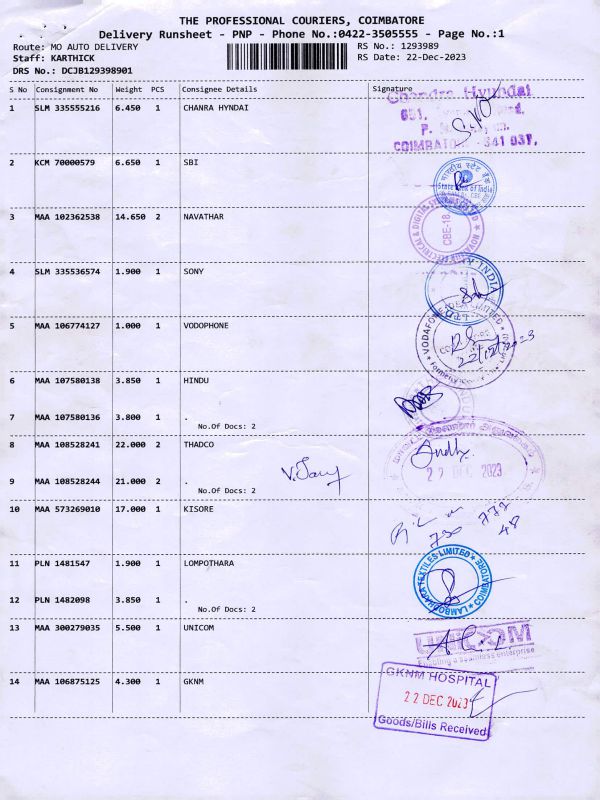 THE PROFESSIONAL COURIERS, COIMBATORE
Delivery Runsheet - PNP - Phone No.:0422-3505555 - Page No.:1
Route: MO AUTO DELIVERY RS No.: 1293989
Staff: KARTHICK RS Date: 22-Dec-2023
DRS No.: DCJB129398901
S No Consignment No Weight PCS Consignee Details Signature
Chandra Hyundai
651,
1 SLM 335555216 6.450 1 CHANRA HYNDAI
COIMBATORE - 641 037.
2 KCM 70000579 6.650 1 SBI
भारतीय स्टेट बैंक
State Bank of India
3 MAA 102362538 14.650 2 NAVATHAR
CBE-18
4 SLM 335536574 1.900 1 SONY
INDIA
LTD.
5 MAA 106774127 1.000 1 VODOPHONE
VODAFONE IDEA LIMITED
22/12/2023
6 MAA 107580138 3.850 1 HINDU
7 MAA 107580136 3.800 1 .
No.Of Docs: 2
8 MAA 108528241 22.000 2 THADCO
22 DEC 2023
9 MAA 108528244 21.000 2 .
No.Of Docs: 2
10 MAA 573269010 17.000 1 KISORE
778
730 48
11 PLN 1481547 1.900 1 LOMPOTHARA
LAMBODHARA TEXTILES LIMITED
COIMBATORE
12 PLN 1482098 3.850 1 .
No.Of Docs: 2
13 MAA 300279035 5.500 1 UNICOM
UNICOM
Enabling a seamless enterprise
14 MAA 106875125 4.300 1 GKNM
GKNM HOSPITAL
22 DEC 2023
Goods/Bills Received